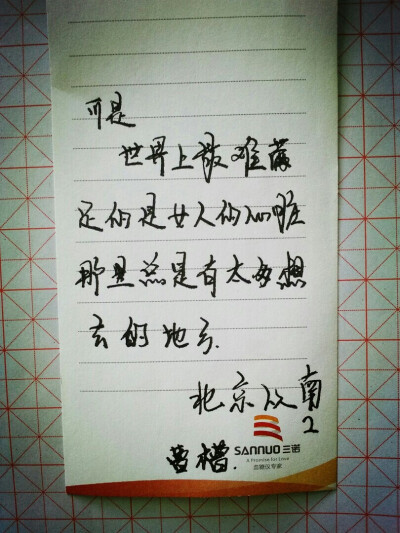 可是
世界上最难满
足的是女人的心脏
那里总是有太多想
去的地方.
北京以南
2
SANNUO三诺
A Promise for Love
血糖仪专家
曹槽.